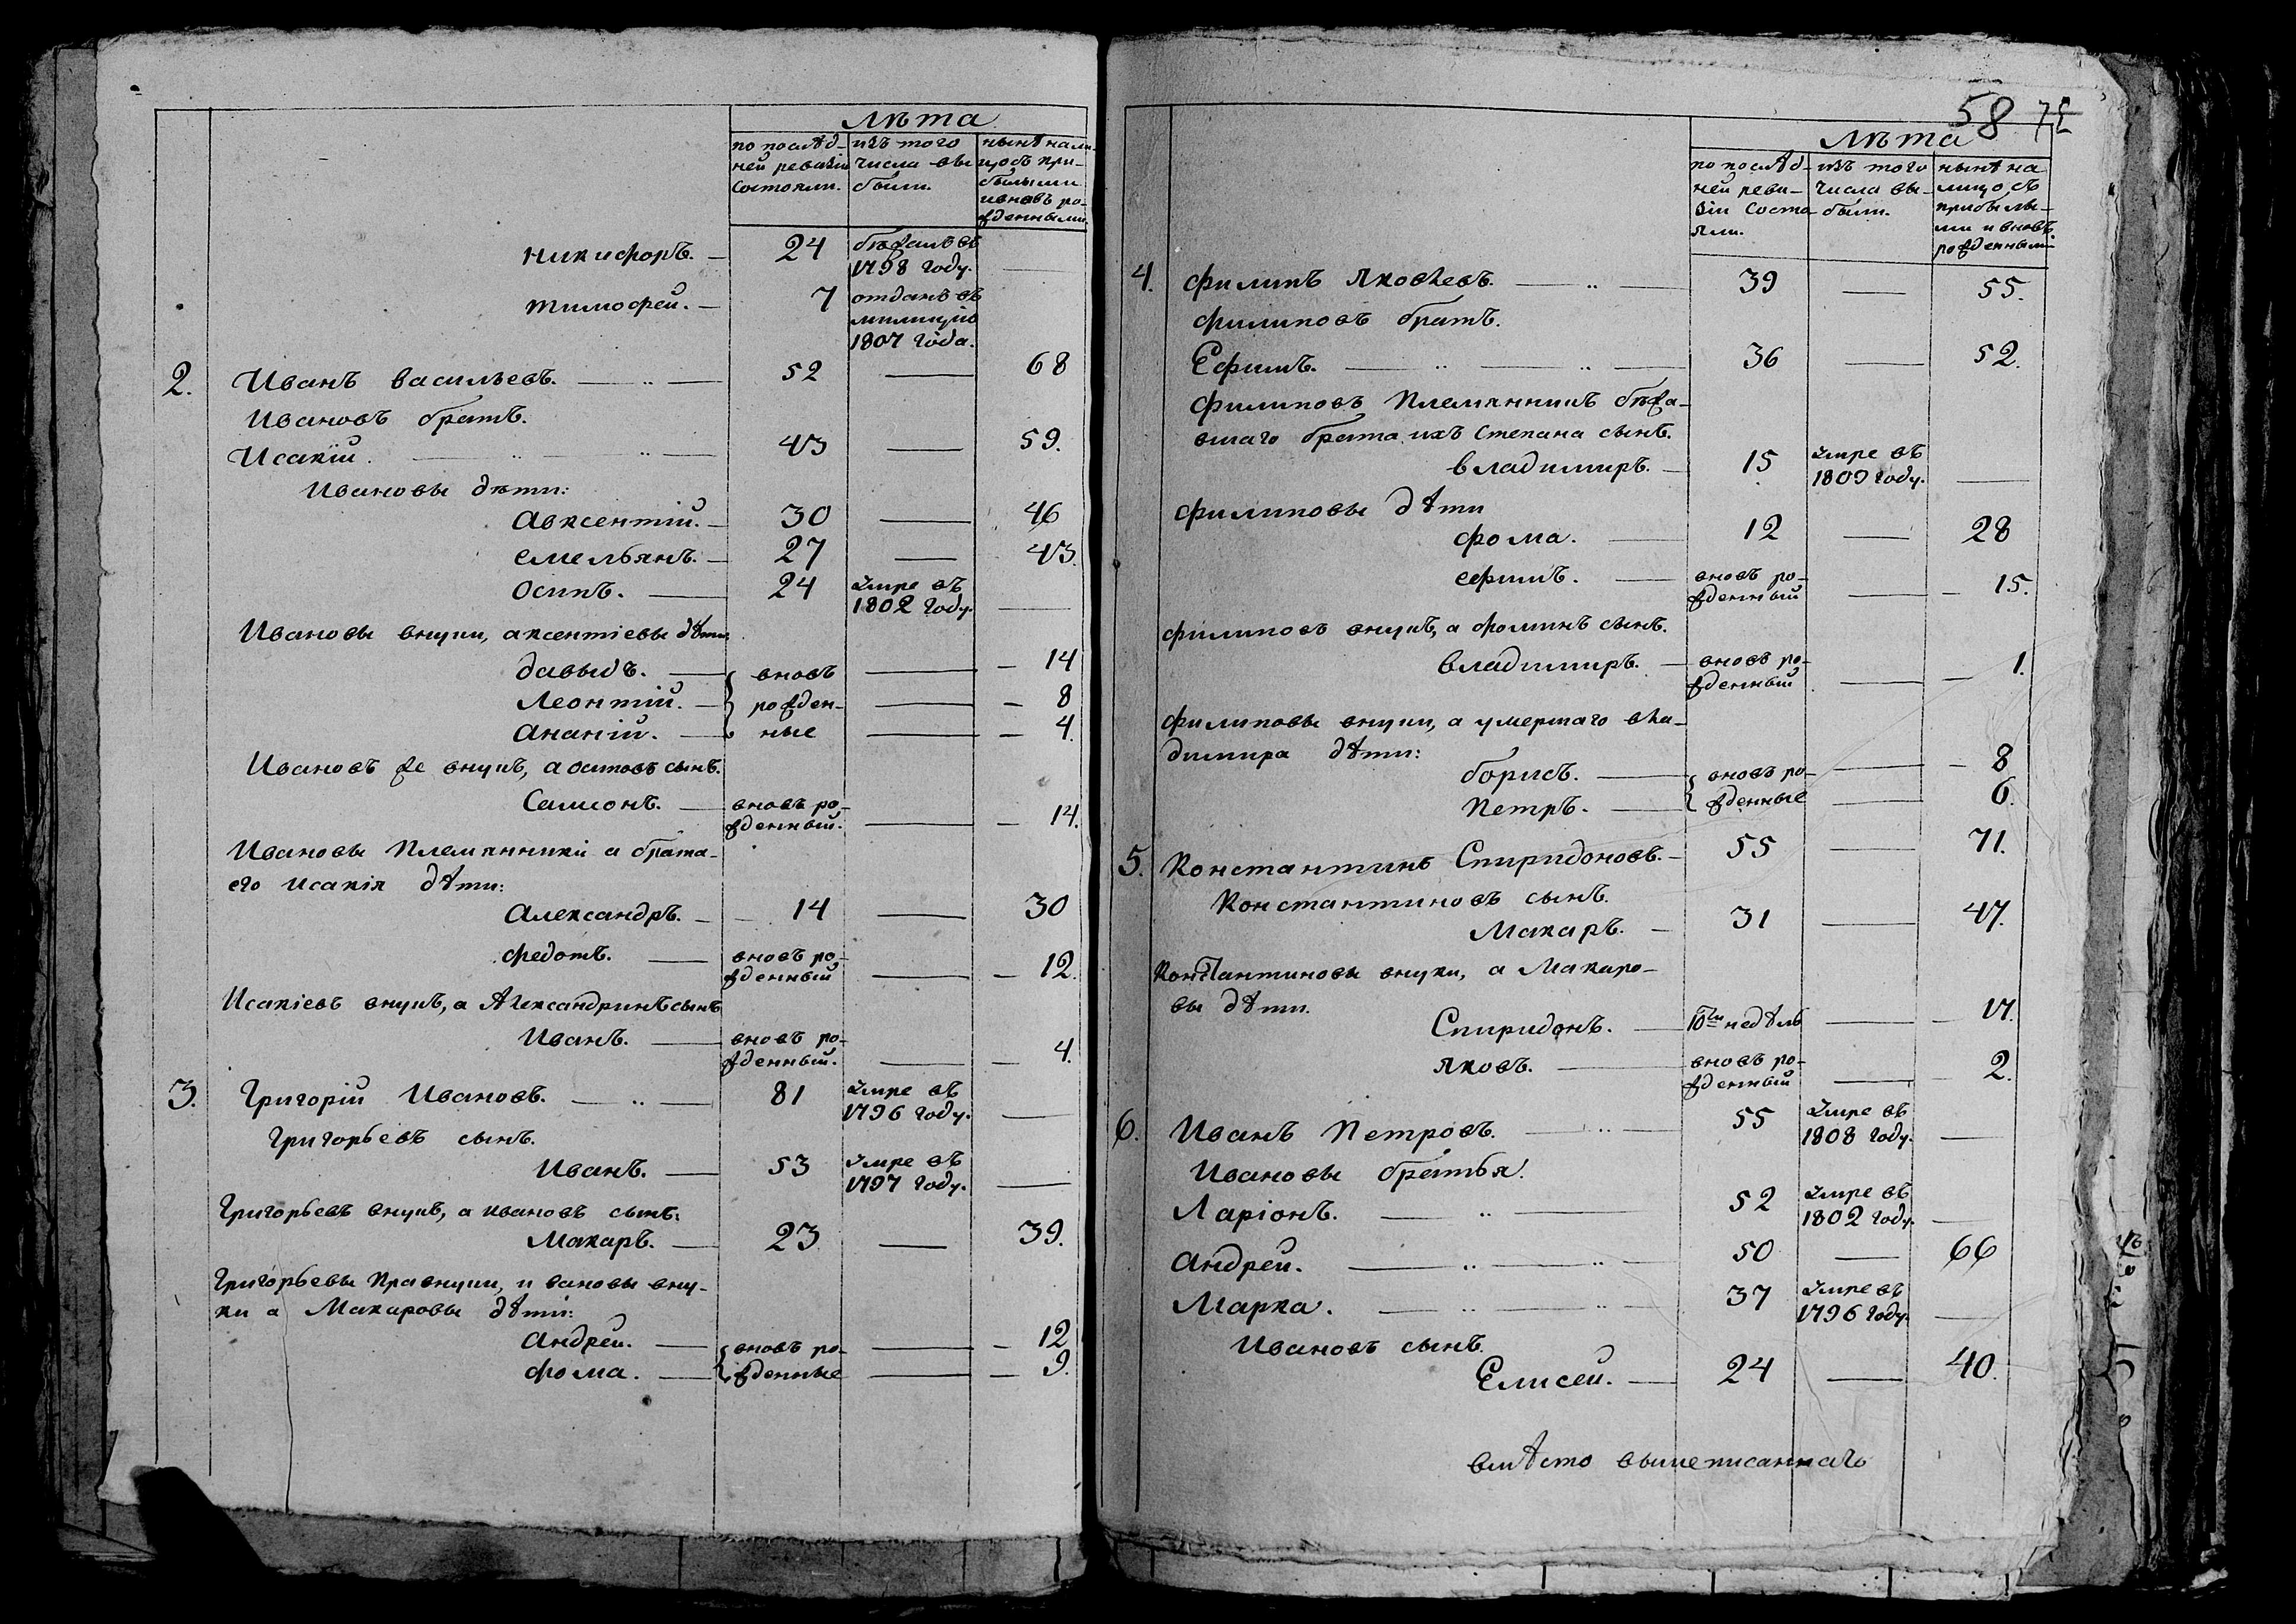 лѣта
по послѣд- изъ того нынѣ нали-
ней ревизiи числа вы цось при-
состояли. были. былыми
ивновь ро-
жденными.
никифоръ. — 24 бѣжалъ въ
1798 году. —
тимофей. — 7 отданъ въ
милицiю
1807 года.
2. Иванъ васильевъ. — 52 — 68
Ивановъ братъ.
Исакiй. — 43 — 59.
Ивановы дѣти:
авксентiй. — 30 — 46
емельянъ. — 27 — 43.
осипъ. — 24 умре въ
1802 году. —
Ивановы внуки, аксентiевы дѣти
давыдъ. — вновь — 14
Леонтiй. — рожден- — 8
ананiй. — ные — 4.
Ивановъ же внукъ, а осиповъ сынъ.
Самсонъ. — вновь ро-
жденный. — 14.
Ивановы племянники а брата-
его исакiя дѣти:
александръ. — 14 — 30
федотъ. — вновь ро-
жденный — 12.
Исакiевъ внукъ, а александринъ сынъ
Иванъ. — вновь ро-
жденный. — 4.
3. Григорiй Ивановъ. — 81 умре въ
1796 году. —
Григорьевъ сынъ.
Иванъ. — 53 умре въ
1797 году. —
Григорьевъ внукъ, а ивановъ сынъ.
Макаръ. — 23 — 39.
Григорьевы правнуки, ивановы вну-
ки а Макаровы дѣтi:
андрей. — вновь ро- — 12
фома. — жденные — 9.
58
лѣта
по послѣд- изъ того нынѣ на
ней реви- числа вы- лицо съ
зiи состо- были. прибылы-
яли. ми и вновь
рожденными
4. филипъ яковлевъ. — 39 — 55.
филиповъ братъ.
Ефимъ. — 36 — 52.
филиповъ племянникъ бѣжа-
вшаго брата ихъ степана сынъ.
владимиръ. — 15 умре въ
1809 году. —
филиповы дѣти
фома. — 12 — 28
ефимъ. — вновь ро-
жденный — 15.
филиповъ внукъ, а фоминъ сынъ.
владимиръ. — вновь ро-
жденный — 1.
филиповы внуки, а умершаго вла-
димира дѣти:
борисъ. — вновь ро- — 8
петръ. — жденные — 6.
5. константинъ Спиридоновъ. — 55 — 71.
константиновъ сынъ.
Макаръ. — 31 — 47.
константиновы внуки, а Макаро-
вы дѣти.
Спиридонъ. — 10ти недѣль — 17.
яковъ. — вновь ро-
жденный — 2.
6. Иванъ петровъ. — 55 умре въ
1808 году. —
Ивановы братья:
Ларiонъ. — 52 умре въ
1802 году. —
андрей. — 50 — 66
Марка. — 37 умре въ
1796 году. —
Ивановъ сынъ.
Елисей. — 24 — 40.
вмѣсто вышеписаннаго